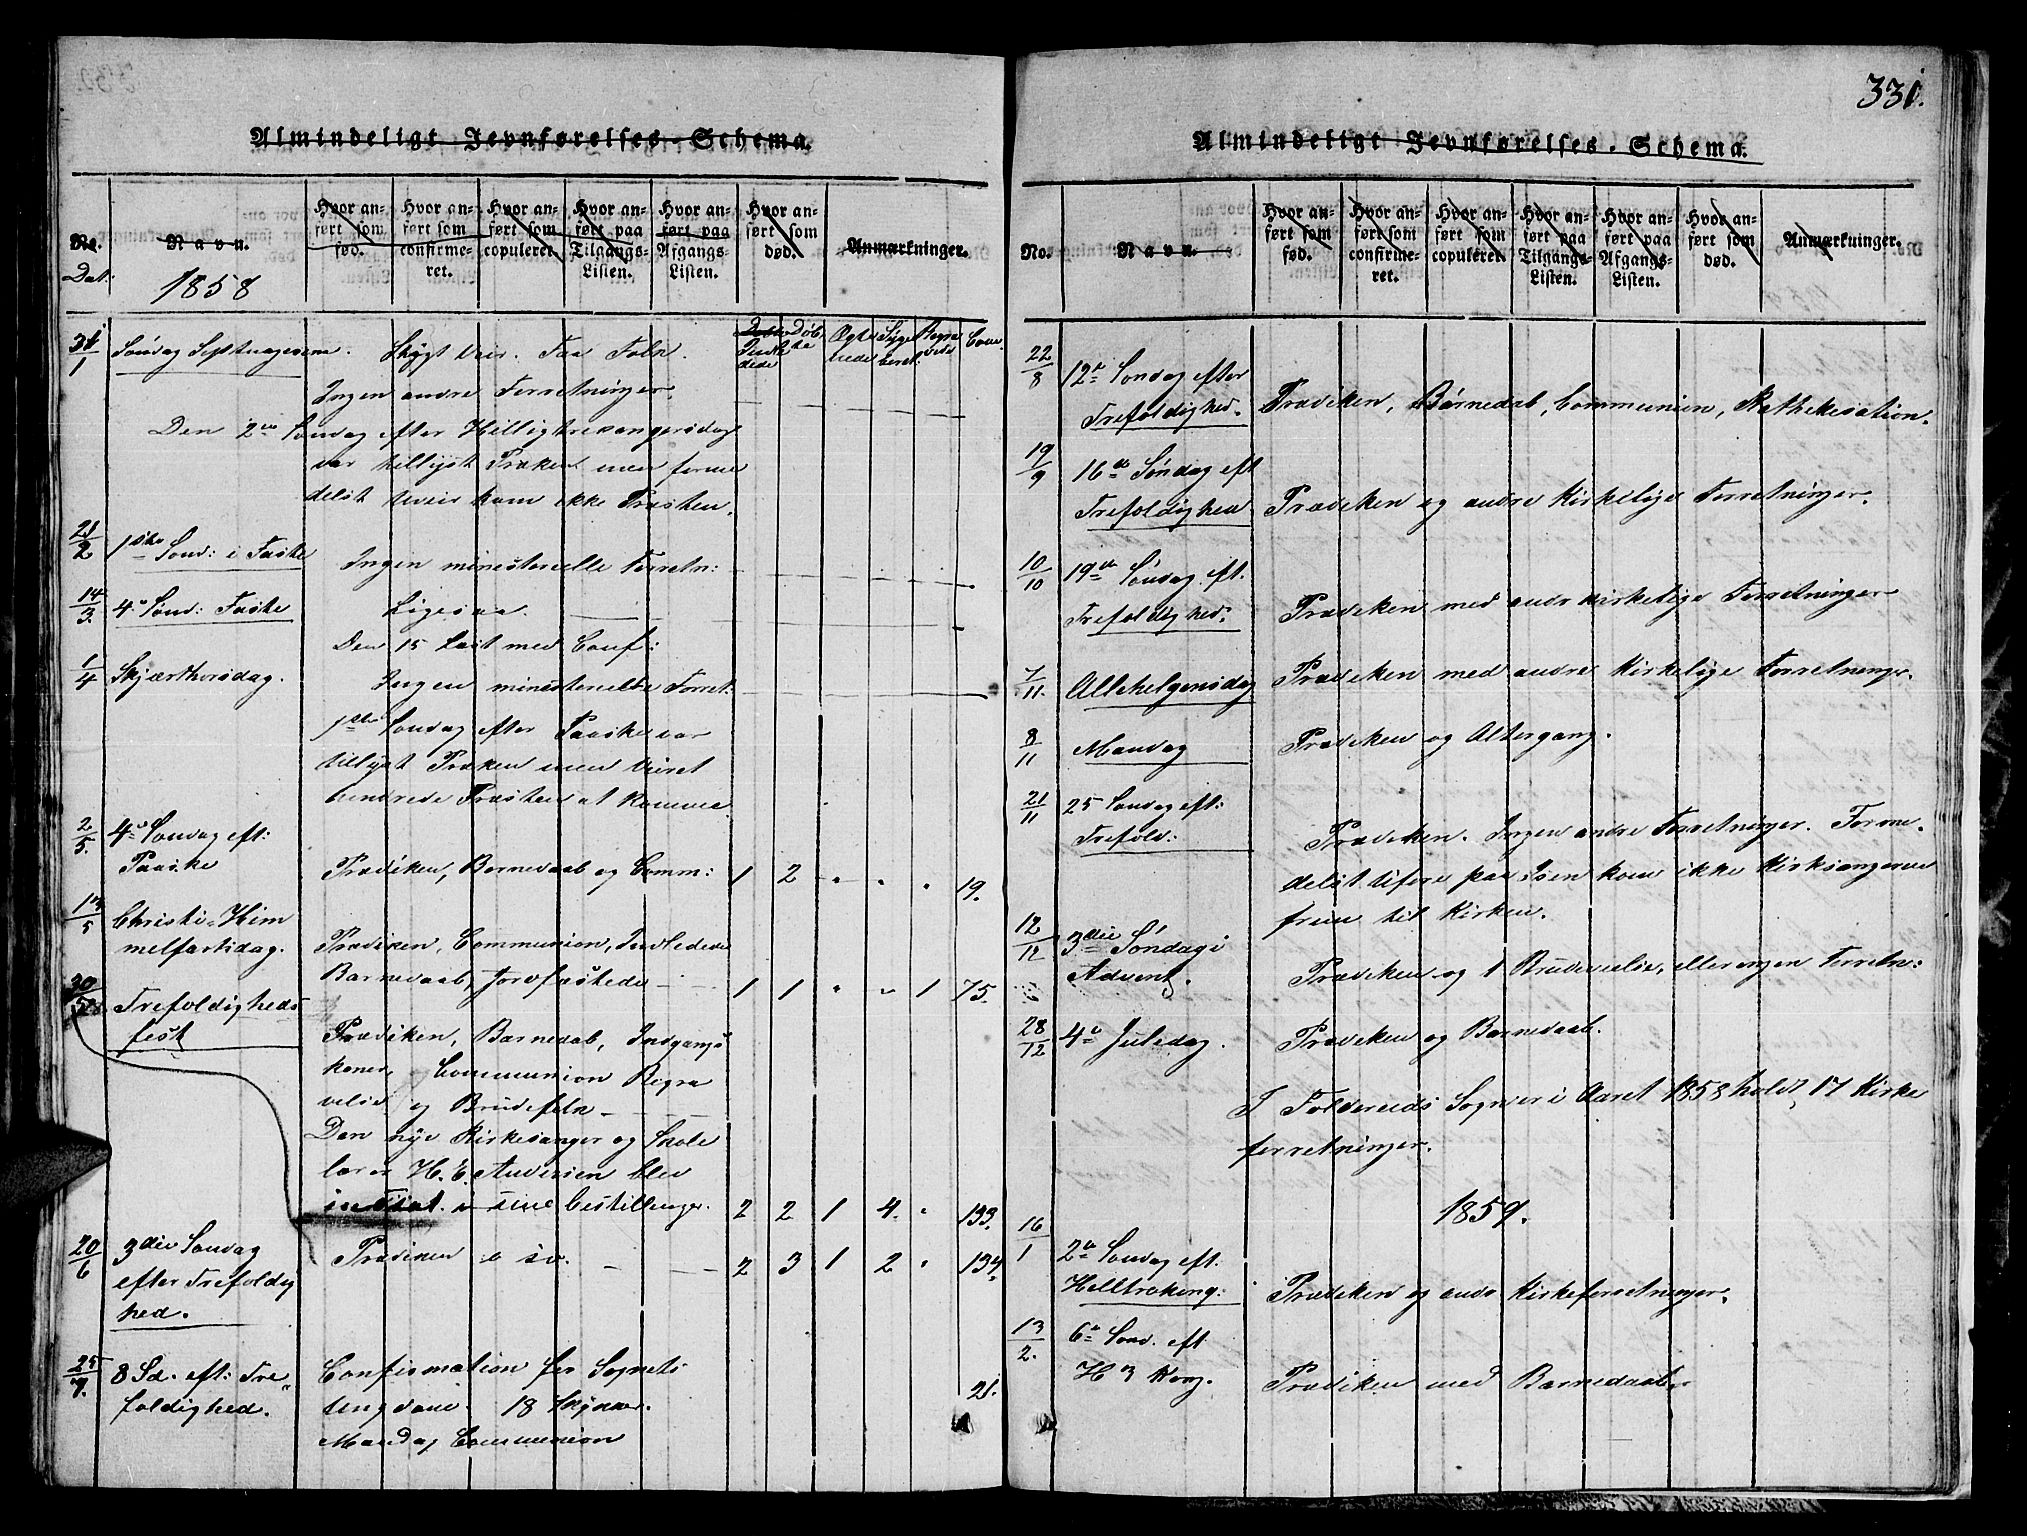 Almindeligt Jevnførelses-Schema.
No.
Navn.
Hvor an-
ført som
fød.
Hvor an-
ført som
confirme-
ret.
Hvor an-
ført som
copuleret.
Hvor an-
ført paa
Tilgangs-
Listen.
Hvor an-
ført paa
Afgangs-
Listen.
Hvor an-
ført som
død.
Anmærkninger.
Dat:
1858
31/1 Søndag Septuagesem. Stygt Veir. Faa Folk.
Ingen andre Forretninger.
Den 2den Søndag efter Helligtrekongersdag
var tillyst Præken men forme
delst Uveir kom ikke Præsten.
21/2 1ste Sønd: i Faste Ingen minesterielle Forretn:
14/3 4de Sønd: Faste Ligesaa.
Den 15 Læst med Conf:
1/4 Skjærthorsdag. Ingen minesterielle Forret:
1ste Søndag efter Paaske var
tillyst Præken men Veiret
hindrede Præsten at komme
2/5 4de Søndag eft:
Paaske Prædiken, Barnedaab og Comm: 1 2 " " " 19.
13/5 Christi Him
melfartsdag. Prædiken, Communion, Indledede
Barnedaab, Jordfæstede 1 1 " " 1 75.
30/5 Trefoldigheds
fest Prædiken, Barnedaab, Indgangs
koner, Communion Begra
velse og Brudefolk
Den nye Kirkesanger og Skole
lærer H. E. Andersen blev
indsat i sine bestillinger. 2 2 1 4. " 133.
20/6 3die Søndag
efter Trefoldig
hed. Prædiken o sv. 2 3 1 2 " 134.
25/7 8 Sd. eft: Tre
foldighed. Confirmation for Sognets
Ungdom. 18 Stykker. 21.
Mandag Communion
331.
Almindeligt Jevnførelses-Schema.
No.
Navn.
Hvor an-
ført som
fød.
Hvor an-
ført som
confirme-
ret.
Hvor an-
ført som
copuleret.
Hvor an-
ført paa
Tilgangs-
Listen.
Hvor an-
ført paa
Afgangs-
Listen.
Hvor an-
ført som
død.
Anmærkninger.
22/8 12te Søndag efter
Trefoldighed. Prædiken, Børnedaab, Communion, Kathekesation.
19/9 16de Søndag eft
Trefoldighed Prædiken og andre Kirkelige Forretninger.
10/10 19de Søndag eft.
Trefoldighed. Prædiken med andr kirkelige Forretninger
7/11. Allehelgensdag Prædiken med andre Kirkelige Forretninger.
8/11 Mandag Prædiken og Altergang.
21/11 25 Søndag eft:
Trefold: Prædiken. Ingen andre Forretninger. Forme-
delst Uføre paa Isen kom ikke Kirksangeren
frem til Kirken.
12/12 3die Søndag i
Advent. Prædiken og 1 Brudevielse, ellers ingen Forretn:
28/12 4de Juledag. Prædiken og Barnedaab.
I Foldereids Sogn er i Aaret 1858 holdt 17 Kirke
forretninger.
1859.
16/1 2de Søndag eft.
Helltrekong: Prædiken og andr Kirkeforretninger.
13/2. 6te Sønd. eft
H 3 Kong. Prædiken med Barnedaab.